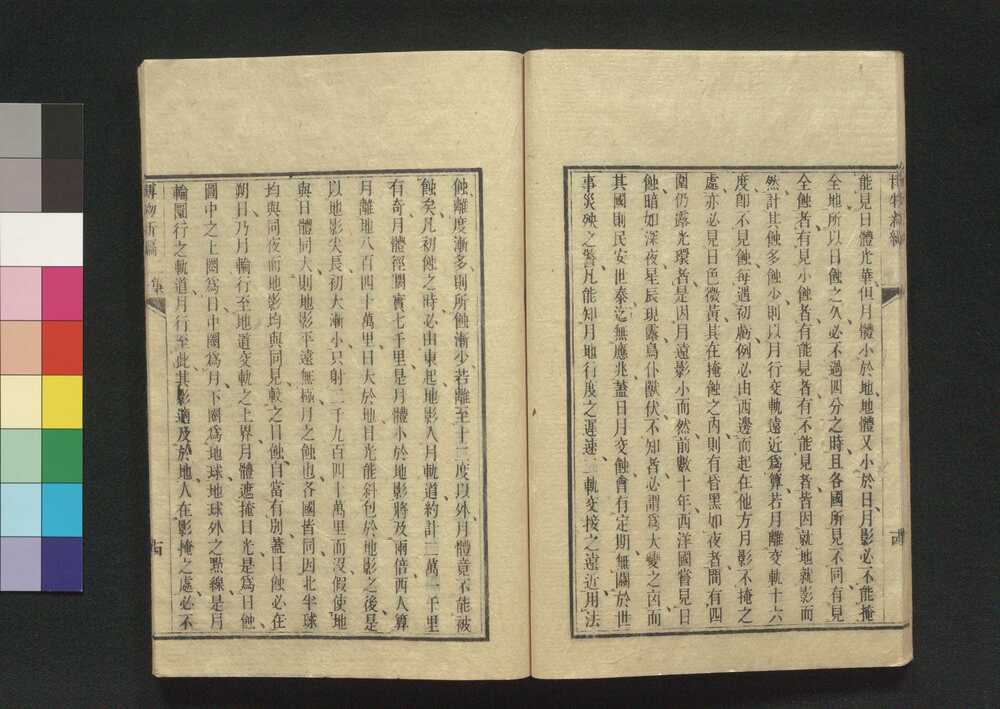 能見日體光華但月體小於地地體又小於日月影必不能掩
全地所以日蝕之久必不過四分之時且各國所見不同有見
全蝕者有見小蝕者有能見者有不能見者皆因就地就影而
然計其蝕多蝕少則以月行交軌遠近爲算若月離交軌十六
度卽不見蝕每遇初虧例必由西邊而起在他方月影不掩之
處亦必見日色微黃其在掩蝕之內則有昏黑如夜者間有四
圍仍露光環者是因月遠影小而然前數十年西洋國嘗見日
蝕暗如深夜星辰現露鳥仆獸伏不知者必謂爲大變之因而
其國則民安世泰迄無應兆蓋日月交蝕會有定期無關於世
事災殃之警凡能知月地行度之遲速二軌交接之遠近用法
蝕離度漸多則所蝕漸少若離至十二度以外月體竟不能被
蝕矣凡初蝕之時必由東起地影入月軌道約計二萬二千里
有奇月體徑闊實七千里是月體小於地影將及兩倍西人算
月離地八百四十萬里日大於地日光能斜包於地影之後是
以地影尖長初大漸小只射二千九百四十萬里而沒假使地
與日體同大則地影平遠無極月之蝕也各國皆同因北半球
均與同夜而地影均與同見較之日蝕自當有別蓋日蝕必在
朔日乃月輪行至地道交軌之上界月體遮掩日光是爲日蝕
圖中之上圈爲日中圈爲月下圈爲地球地球外之點線是月
輪圜行之軌道月行至此其影適及於地人在影掩之處必不
博物新編